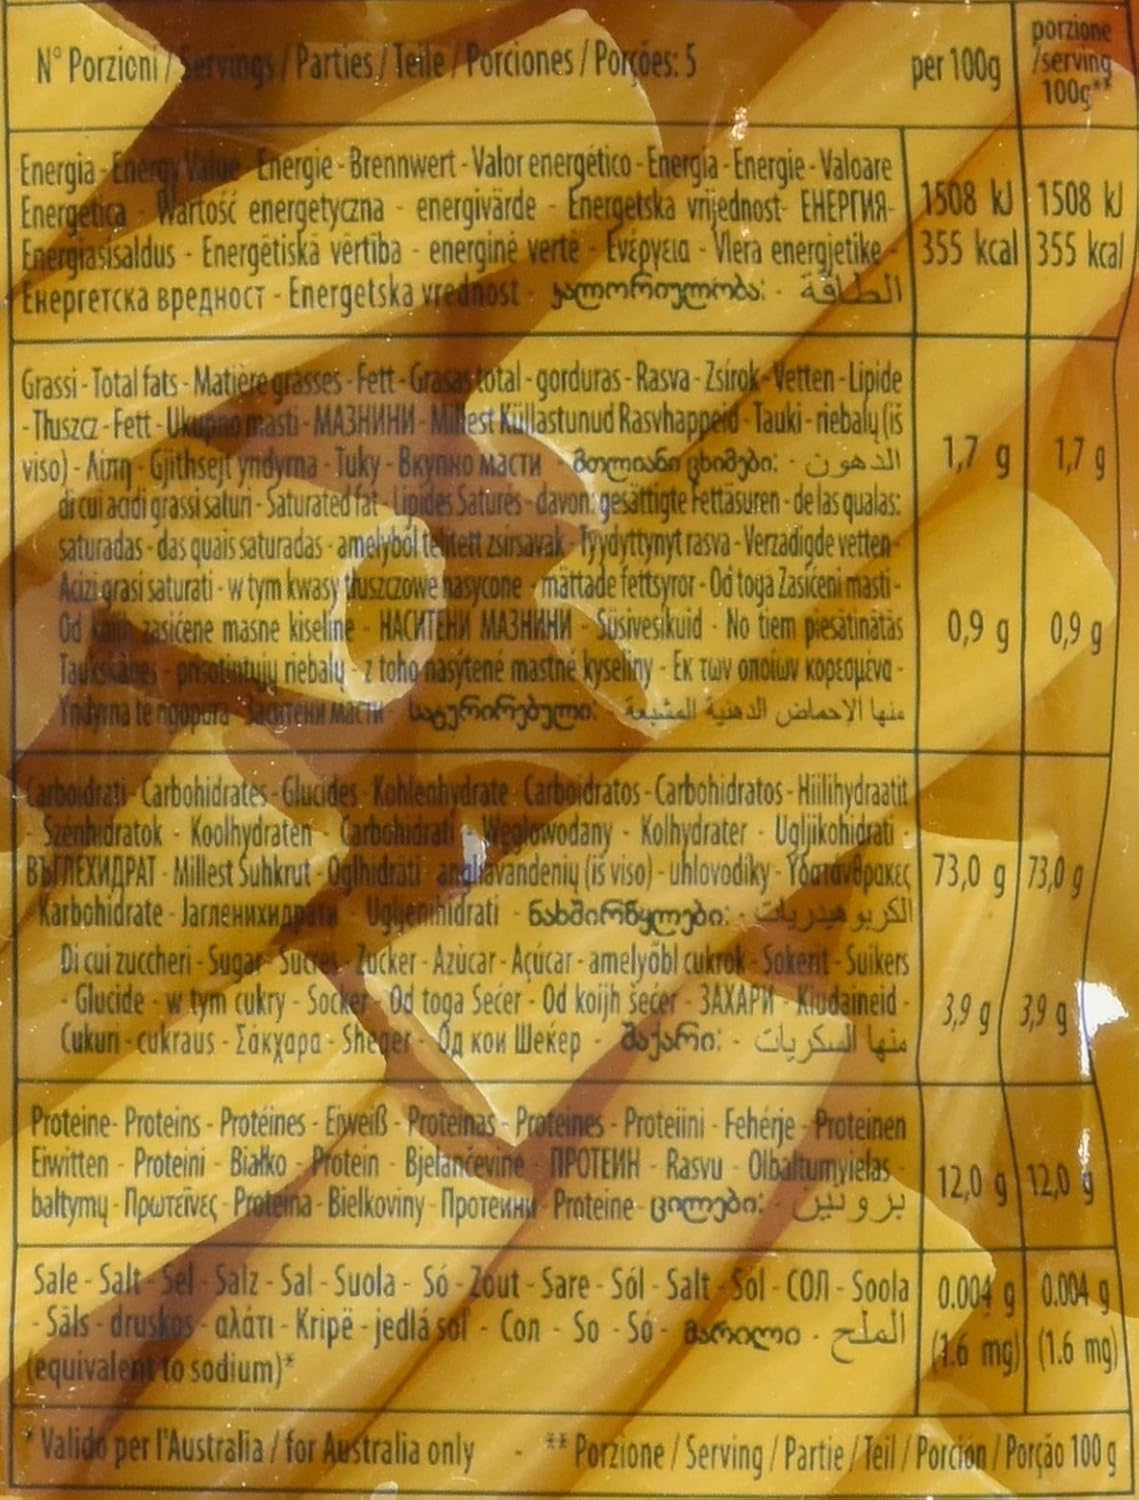 N° Porzioni / Servings / Parties / Teile / Porciones / Porções: 5
per 100g
porzione
/serving
100g**
Energia - Energy Value - Energie - Brennwert - Valor energético - Energia - Energie - Valoare
Energetica - Wartość energetyczna - energivärde - Energetska vrijednost- ЕНЕРГИЯ-
Energiasisaldus - Energētiskā vērtība - energinė vertė - Ενέργεια - Vlera energjetike -
Енергетска вредност - Energetska vrednost - კალორიულობა: - الطاقة
1508 kJ 1508 kJ
355 kcal 355 kcal
Grassi - Total fats - Matière grasses - Fett - Grasas total - gorduras - Rasva - Zsírok - Vetten - Lipide
- Tłuszcz - Fett - Ukupno masti - МАЗНИНИ - Millest Küllastunud Rasvhappeid - Tauki - riebalų (iš
viso) - Λίπη - Gjithsejt yndyrna - Tuky - Вкупно масти - მთლიანი ცხიმები: - الدهون
1,7 g 1,7 g
di cui acidi grassi saturi - Saturated fat - Lipides Saturés - davon: gesättigte Fettäsuren - de las qualas:
saturadas - das quais saturadas - amelyből telített zsírsavak - Tyydyttynyt rasva - Verzadigde vetten-
Acizi grasi saturati - w tym kwasy tłuszczowe nasycone - mättade fettsyror - Od toga Zasićeni masti -
Od kojih zasićene masne kiseline - НАСИТЕНИ МАЗНИНИ - Süsivesikuid - No tiem piesātinātās
Taukskābes - prisotintųjų riebalų - z toho nasýtené mastné kyseliny - Εκ των οποίων κορεσμένα -
Yndyrna te ngopura - Заситени масти - სატურირებული: - منها الاحماض الدهنية المشبعة
0,9 g 0,9 g
Carboidrati - Carbohidrates - Glucides - Kohlenhydrate - Carboidratos - Carbohidratos - Hiilihydraatit
- Szénhidratok - Koolhydraten - Carbohidrati - Węglowodany - Kolhydrater - Ugljikohidrati -
ВЪГЛЕХИДРАТ - Millest Suhkrut - Oglhidrāti - angliavandenių (iš viso) - uhlovodíky - Υδατανθρακες
Karbohidrate - Јагленихидрати - Ugljenihidrati - ნახშირწყლები: - الكربوهيدريات
73,0 g 73,0 g
Di cui zuccheri - Sugar - Sucres - Zucker - Azùcar - Açúcar - amelyõbl cukrok - Sokerit - Suikers
- Glucide - w tym cukry - Socker - Od toga Šećer - Od koijh šećer - ЗАХАРИ - Kiudaineid -
Cukuri - cukraus - Σάκχαρα - Sheqer - Од кои Шеќер - შაქარი: - منها السكريات
3,9 g 3,9 g
Proteine- Proteins - Protéines - Eiweiß - Proteínas - Proteines - Proteiini - Fehérje - Proteinen
Eiwitten - Proteini - Białko - Protein - Bjelančevine - ПРОТЕИН - Rasvu - Olbaltumvielas -
baltymų - Πρωτεΐνες - Proteina - Bielkoviny - Протеини - Proteine- ცილები: - بروتين
12,0 g 12,0 g
Sale - Salt - Sel - Salz - Sal - Suola - Só - Zout - Sare - Sól - Salt - Sol - СОЛ - Soola
- Sāls - druskos - αλάτι - Kripë - jedlá sol' - Сол - So - Só - მარილი - الملح
(equivalent to sodium)*
0.004 g 0.004 g
(1.6 mg) (1.6 mg)
* Valido per l'Australia / for Australia only - ** Porzione / Serving / Partie / Teil / Porción / Porção 100 g